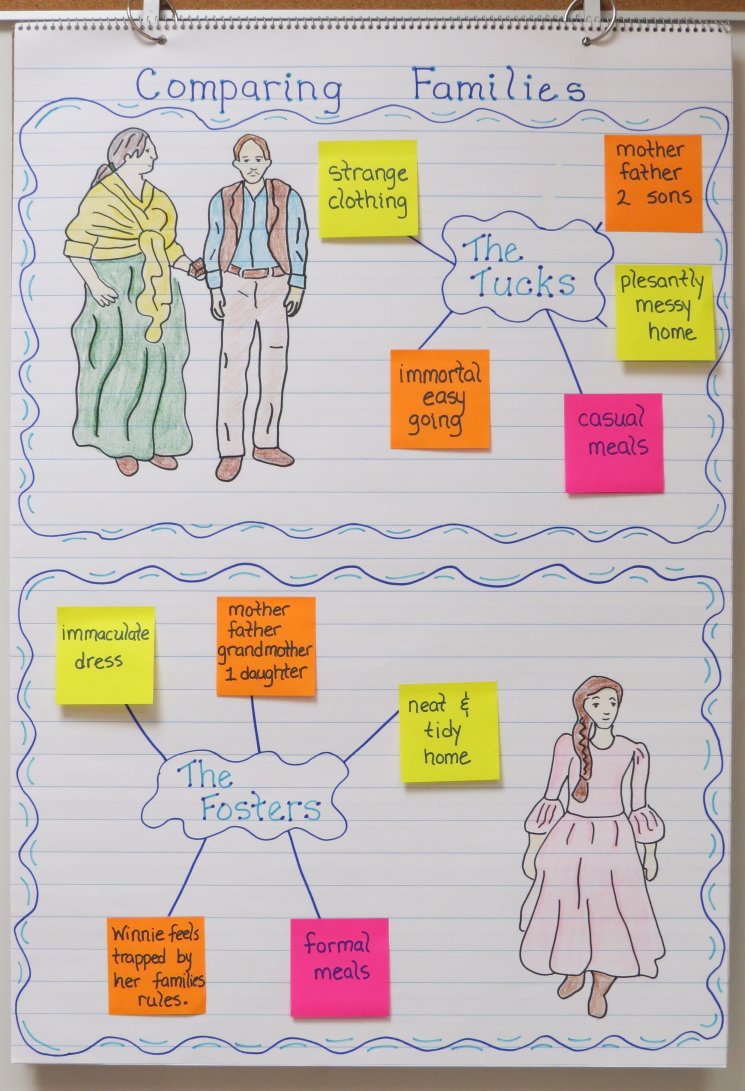 Comparing Families
strange
clothing
mother
father
2 sons
The
Tucks
plesantly
messy
home
immortal
easy
going
casual
meals
immaculate
dress
mother
father
grandmother
1 daughter
neat &
tidy
home
The
Fosters
Winnie feels
trapped by
her families
rules.
formal
meals